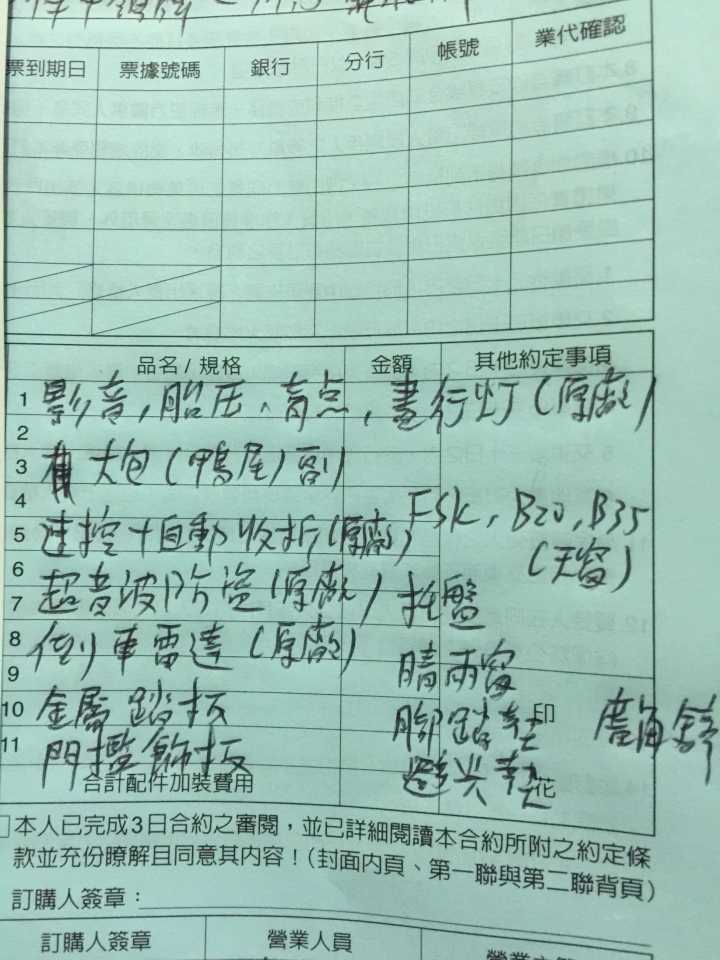 票到期日 票據號碼 銀行 分行 帳號 業代確認
品名/規格 金額 其他約定事項
1 影音,胎压、盲点,晝行灯(原廠)
2
3 大包(鴨尾)
4
FSK, B20, B35
5 速控+自動收折(原廠)
(天窗)
6
7 超音波防盜(原廠)
托盤
8 倒車雷達(原廠)
9
晴雨窗
10 金屬踏板
腳踏墊
印
11 門檻飾板
避光墊
花
合計配件加裝費用
本人已完成3日合約之審閱,並已詳細閱讀本合約所附之約定條
款並充份瞭解且同意其內容!(封面內頁、第一聯與第二聯背頁)
訂購人簽章:
訂購人簽章 營業人員